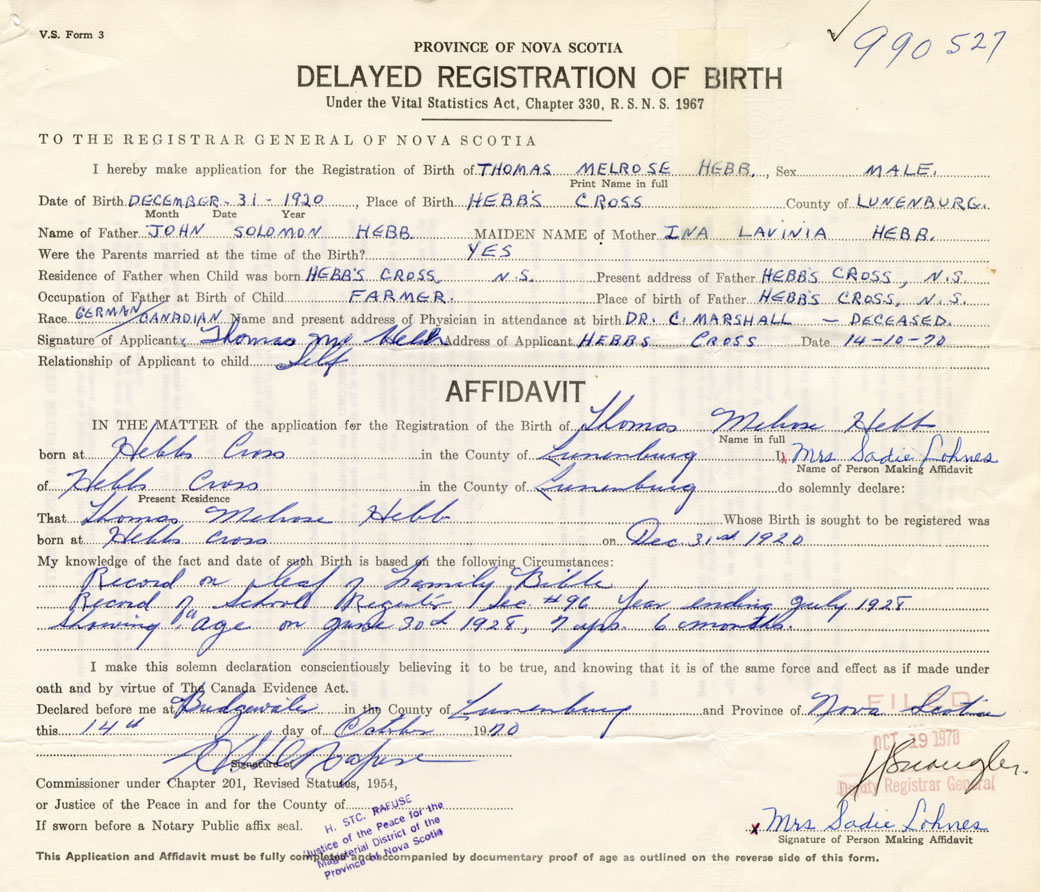 V.S. Form 3
✓ 990527
PROVINCE OF NOVA SCOTIA
DELAYED REGISTRATION OF BIRTH
Under the Vital Statistics Act, Chapter 330, R. S. N. S. 1967
TO THE REGISTRAR GENERAL OF NOVA SCOTIA
I hereby make application for the Registration of Birth of THOMAS MELROSE HEBB. , Sex MALE.
Print Name in full
Date of Birth DECEMBER - 31 - 1920 , Place of Birth HEBB'S CROSS County of LUNENBURG.
Month Date Year
Name of Father JOHN SOLOMON HEBB. MAIDEN NAME of Mother INA LAVINIA HEBB.
Were the Parents married at the time of the Birth? YES
Residence of Father when Child was born HEBB'S CROSS, N.S. Present address of Father HEBB'S CROSS, N.S.
Occupation of Father at Birth of Child FARMER. Place of birth of Father HEBB'S CROSS, N.S.
Race GERMAN/CANADIAN Name and present address of Physician in attendance at birth DR. C. MARSHALL — DECEASED.
Signature of Applicant Thomas M. Hebb Address of Applicant HEBBS CROSS Date 14-10-70
Relationship of Applicant to child Self
AFFIDAVIT
IN THE MATTER of the application for the Registration of the Birth of Thomas Melrose Hebb
Name in full
born at Hebbs Cross in the County of Lunenburg I, x Mrs Sadie Lohnes
Name of Person Making Affidavit
of Hebbs Cross in the County of Lunenburg do solemnly declare:
Present Residence
That Thomas Melrose Hebb Whose Birth is sought to be registered was
born at Hebbs Cross on Dec 31st 1920
My knowledge of the fact and date of such Birth is based on the following Circumstances:
Record on leaf of Family Bible
Record of School Register Sec. #96 Year ending July 1928
Showing age on June 30th 1928, 7 yrs. 6 months.
I make this solemn declaration conscientiously believing it to be true, and knowing that it is of the same force and effect as if made under
oath and by virtue of The Canada Evidence Act.
Declared before me at Bridgewater in the County of Lunenburg and Province of Nova Scotia
FILED
this 14th day of October 1970
OCT 19 1970
Signature of
Deputy Registrar General
Commissioner under Chapter 201, Revised Statutes, 1954,
or Justice of the Peace in and for the County of
If sworn before a Notary Public affix seal.
H. STC. RAFUSE
Justice of the Peace for the
Magisterial District of the
Province of Nova Scotia
x Mrs Sadie Lohnes
Signature of Person Making Affidavit
This Application and Affidavit must be fully completed and accompanied by documentary proof of age as outlined on the reverse side of this form.